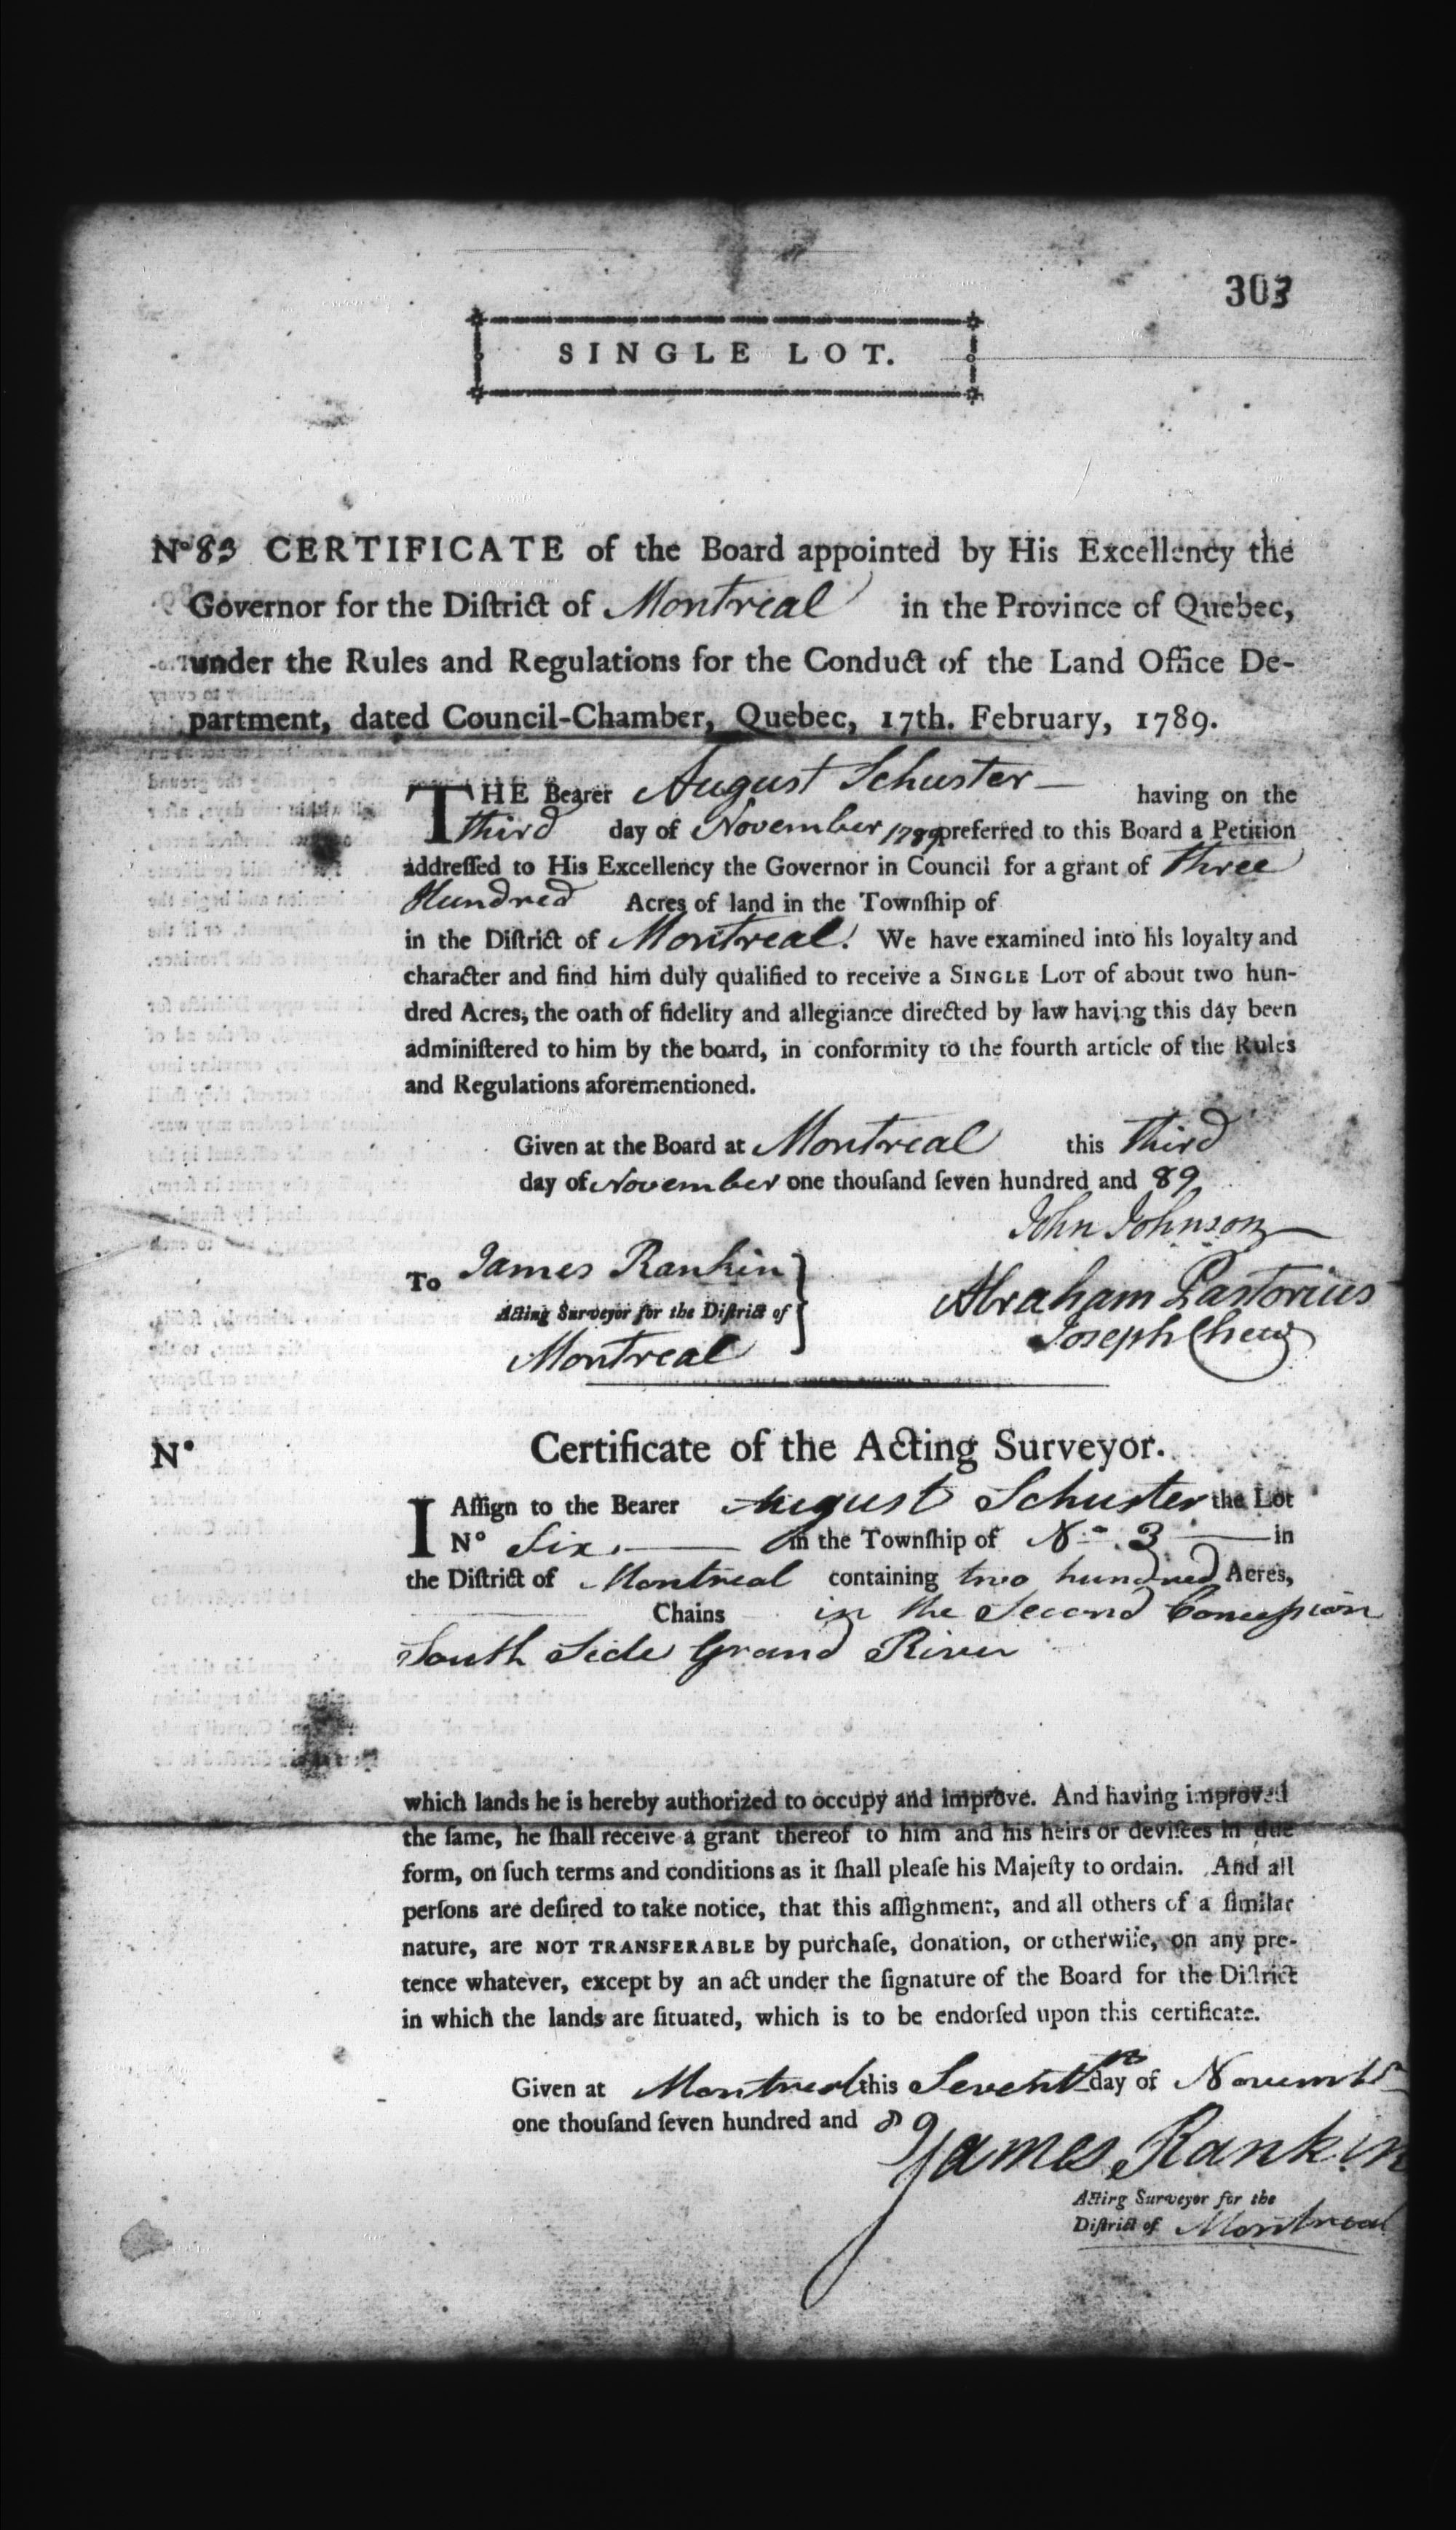 303
SINGLE LOT.
No 83 CERTIFICATE of the Board appointed by His Excellency the
Governor for the Diſtrict of Montreal in the Province of Quebec,
under the Rules and Regulations for the Conduct of the Land Office De-
partment, dated Council-Chamber, Quebec, 17th. February, 1789.
THE Bearer August Schuster — having on the
third day of November 1789 preferred to this Board a Petition
addreſſed to His Excellency the Governor in Council for a grant of three
Hundred Acres of land in the Townſhip of
in the Diſtrict of Montreal. We have examined into his loyalty and
character and find him duly qualified to receive a SINGLE LOT of about two hun-
dred Acres, the oath of fidelity and allegiance directed by law having this day been
adminiſtered to him by the board, in conformity to the fourth article of the Rules
and Regulations aforementioned.
Given at the Board at Montreal this third
day of November one thouſand ſeven hundred and 89
John Johnson
To James Rankin
Abraham Pastorius
Acting Surveyor for the Diſtrict of
Joseph Chew
Montreal
No Certificate of the Acting Surveyor.
I Aſſign to the Bearer August Schuster the Lot
No Six — in the Townſhip of No 3 — in
the Diſtrict of Montreal containing two hundred Acres,
Chains in the Second Conceſsion
South Side Grand River
which lands he is hereby authorized to occupy and improve. And having improved
the ſame, he ſhall receive a grant thereof to him and his heirs or deviſees in due
form, on ſuch terms and conditions as it ſhall pleaſe his Majeſty to ordain. And all
perſons are deſired to take notice, that this aſſignment, and all others of a ſimilar
nature, are NOT TRANSFERABLE by purchaſe, donation, or otherwiſe, on any pre-
tence whatever, except by an act under the ſignature of the Board for the Diſtrict
in which the lands are ſituated, which is to be endorſed upon this certificate.
Given at Montreal this Seventh day of Novembr
one thouſand ſeven hundred and 89
James Rankin
Acting Surveyor for the
Diſtrict of Montreal